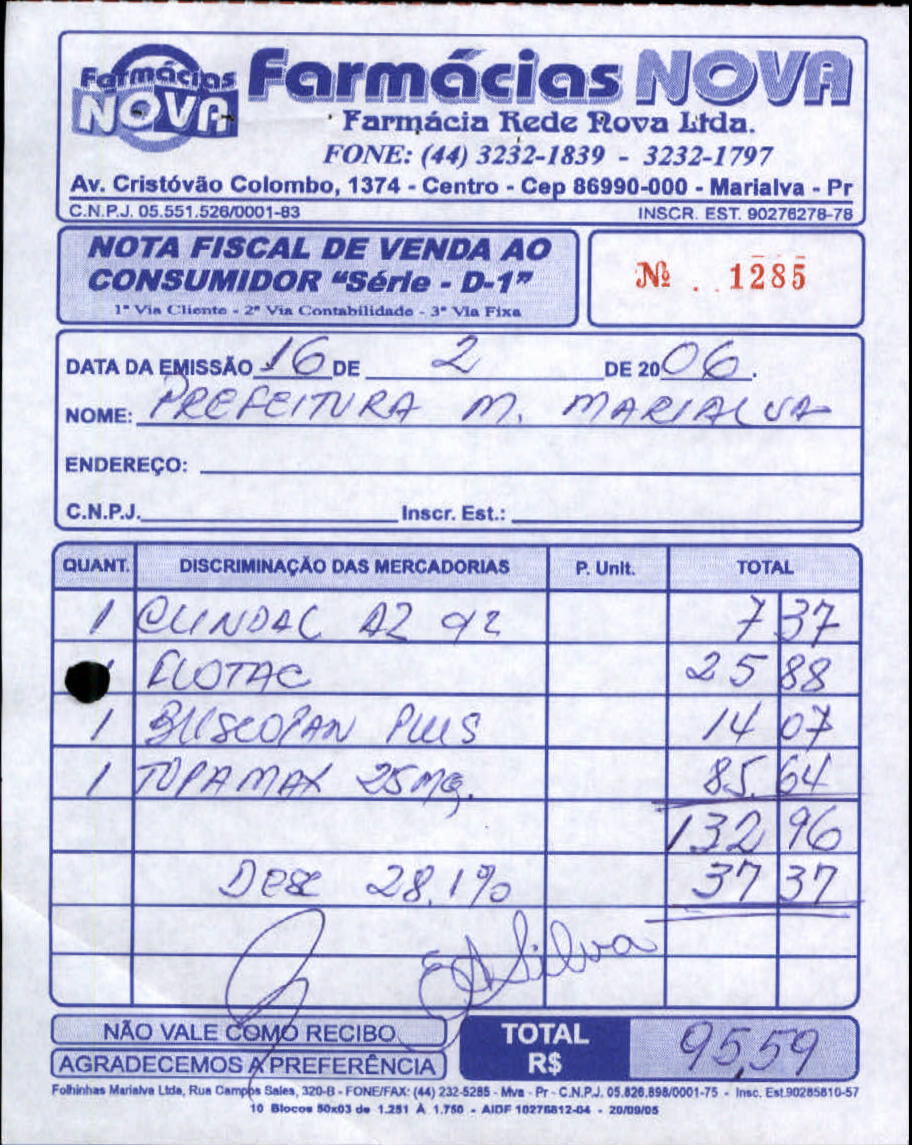 Farmácias NOVA Farmácias NOVA
Farmácia Rede Nova Ltda.
FONE: (44) 3232-1839 - 3232-1797
Av. Cristóvão Colombo, 1374 - Centro - Cep 86990-000 - Marialva - Pr
C.N.P.J. 05.551.526/0001-83 INSCR. EST. 90276278-78
NOTA FISCAL DE VENDA AO
CONSUMIDOR "Série - D-1"
1ª Via Cliente - 2ª Via Contabilidade - 3ª Via Fixa
Nº . . 1285
DATA DA EMISSÃO 16 DE 2 DE 2006.
NOME: PREFEITURA M. MARIALVA
ENDEREÇO:
C.N.P.J. Inscr. Est.:
QUANT. DISCRIMINAÇÃO DAS MERCADORIAS P. Unit. TOTAL
1 CLINDAC AZ 7 37
FLOTAC 25 88
1 BUSCOPAN PLUS 14 07
1 TOPAMAX 25 mg. 85,64
132 96
DESC 28,1% 37 37
Silva
NÃO VALE COMO RECIBO
AGRADECEMOS A PREFERÊNCIA
TOTAL
R$ 95,59
Folhinhas Marialva Ltda, Rua Campos Sales, 320-B - FONE/FAX: (44) 232-5285 - Mva - Pr - C.N.P.J. 05.826.898/0001-75 - Insc. Est.90285610-57
10 Blocos 50x03 de 1.251 À 1.750 - AIDF 10276812-04 - 20/09/05